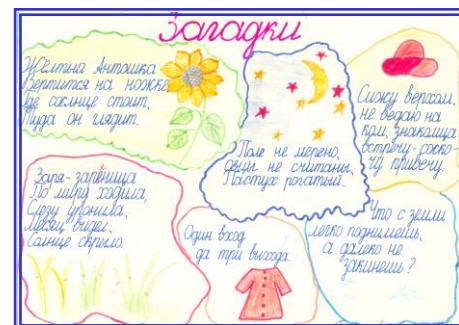 Загадки
Жёлтина Антошка
Вертится на ножке
Где солнце стоит,
Туда он глядит.
Поле не мерено,
Овцы не считаны,
Пастух рогатый.
Сижу верхом,
не ведаю на
ком, знакомца
встречу-соско-
чу привечу.
Заря-заряница
По миру ходила,
Слезу уронила,
Месяц видел,
Солнце скрыло.
Один вход
да три выхода.
Что с земли
легко поднимешь,
а далеко не
закинешь?